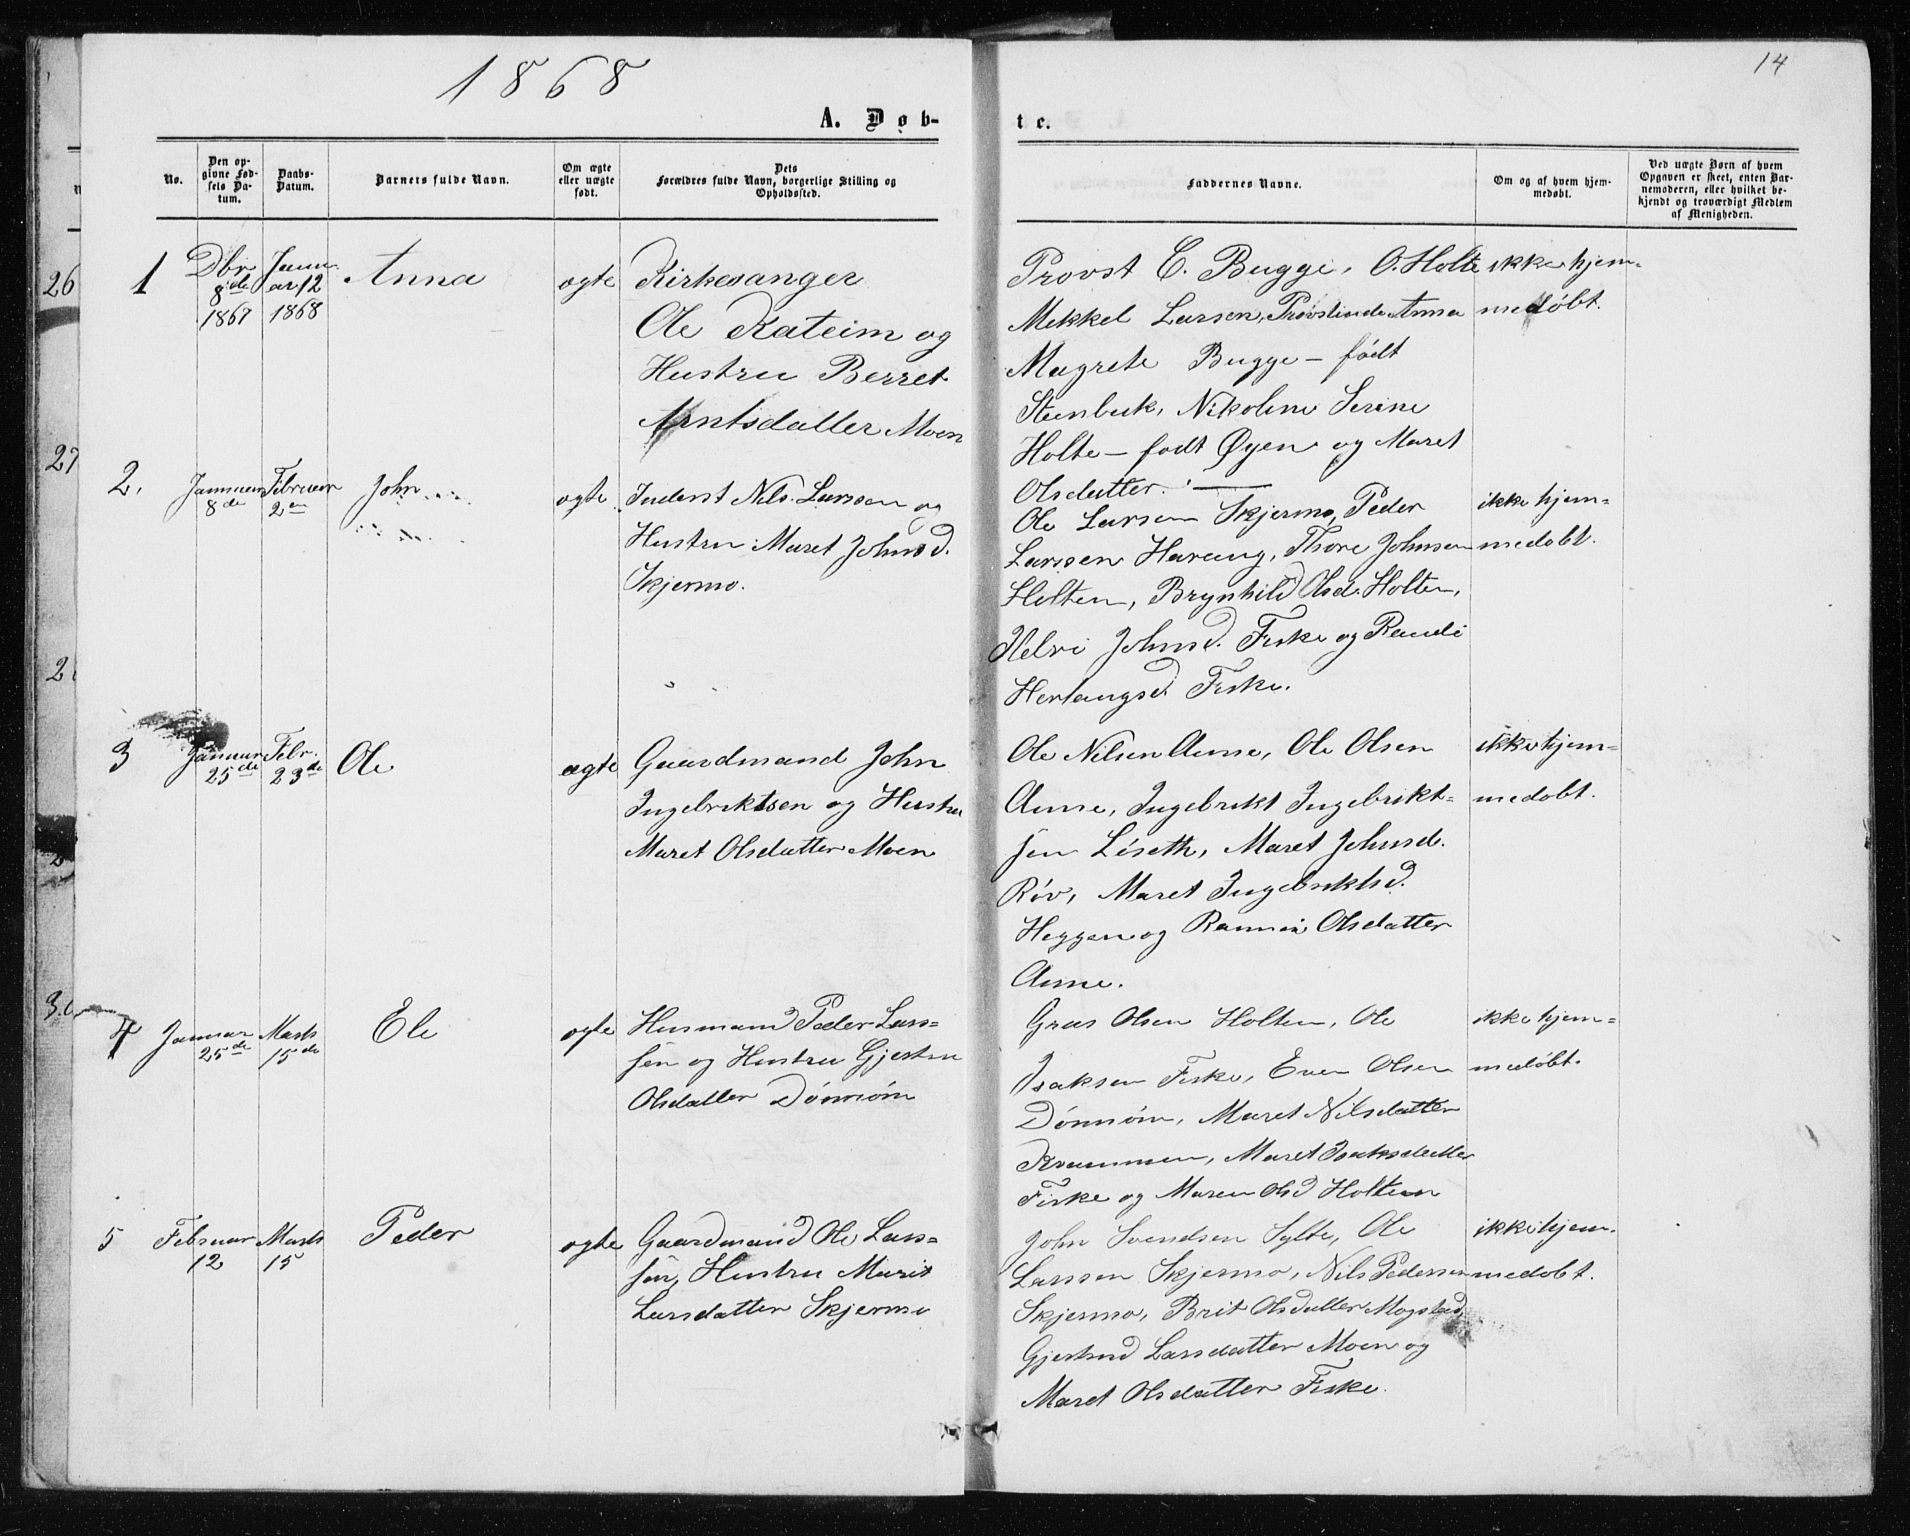 1868
14
A. Døb-
te.
No.
Den op-
givne Fød-
sels Da-
tum.
Daabs-
Datum.
Barnets fulde Navn.
Om ægte
eller uægte
født.
Dets
Forældres fulde Navn, borgerlige Stilling og
Opholdssted.
Faddernes Navne.
Om og af hvem hjem-
medøbt.
Ved uægte Børn af hvem
Opgaven er skeet, enten Bar-
nemoderen, eller hvilket be-
kjendt og troværdigt Medlem
af Menigheden.
26
27
1
Dbr
8de
1867
Janu-
ar 12
1868
Anna
ægte
Kirkesanger
Ole Kateim og
Hustru Berret
Arntsdatter Moen
Provst C. Bugge, O. Holte
Mekkel Larsen, Provstinde Anna
Magrete Bugge - født
Steenbuk, Nikoline Serine
Holte - født Øyen og Maret
Olsdatter.
ikke hjem-
medøbt.
2.
Januar
8de
Februar
2en
John
ægte
Inderst Nils Larssen og
Hustru Maret Johnsd.
Skjermo.
Ole Larsen Skjermo, Peder
Larssen Harang, Thore Johnsen
Holten, Brynhild Olsd. Holten,
Johnsd. Fiske og Randi
Herlaugsd. Fiske.
ikke hjem-
medøbt.
3
Januar
25de
Febr.
23de
Ole
ægte
Gaardmand John
Ingebriktsen og Hustru
Maret Olsdatter Moen
Ole Nilsen Aune, Ole Olsen
Aune, Ingebrikt Ingebrikt-
sen Løseth, Maret Johnsd.
Røv, Maret Ingebriktsd.
Heggen og Rannei Olsdatter
Aune.
ikke hjem-
medøbt.
4
Januar
25de
Marts
15de
Ele
ægte
Husmand Peder Lars-
sen og Hustru Gjertru
Olsdatter Dønnøm
Olsen Holten, Ole
Isaksen Fiske, Even Olsen
Dønnøm, Maret Nilsdatter
Krammen, Maret Isaksdatter
Fiske og Maren Olsd Holten
ikke hjem-
medøbt.
5
Februar
12
Marts
15
Peder
ægte
Gaardmand Ole Lars-
sen, Hustru Marit
Larsdatter Skjermo
John Svendsen Sylte, Ole
Larssen Skjermo, Nils Pedersen
Skjermo, Brit Olsdatter Mogstad
Gjertrud Larsdatter Moen og
Maret Olsdatter Fiske.
ikke hjem-
medøbt.